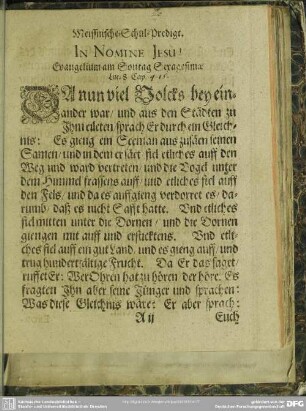 Meissnische-Schul-Predigt.
IN NOMINE JESU!
Evangelium am Sontag Sexagesimæ
Luc. 8. Cap. 4-15.
DA nun viel Volcks bey ein-
ander war/ und aus den Städten zu
Jhm eileten/ sprach Er durch ein Gleich-
nis: Es gieng ein Seeman aus zusäen seinen
Samen/ und in dem er säet/ fiel etlichs auff den
Weg und ward vertreten/ und die Vögel unter
dem Himmel frassens auff/ und etliches fiel auff
den Fels/ und da es auffgieng verdorret es/ da-
rumb/ daß es nicht Safft hatte. Und etliches
fiel mitten unter die Dornen/ und die Dornen
giengen mit auff und ersticktens. Und etli-
ches fiel auff ein gut Land/ und es gieng auff/ und
trug hundertfältige Frucht. Da Er das saget/
ruffet Er: Wer Ohren hat zu hören der höre. Es
fragten Jhn aber seine Jünger und sprachen:
Was diese Gleichnis wäre? Er aber sprach:
A ij Euch